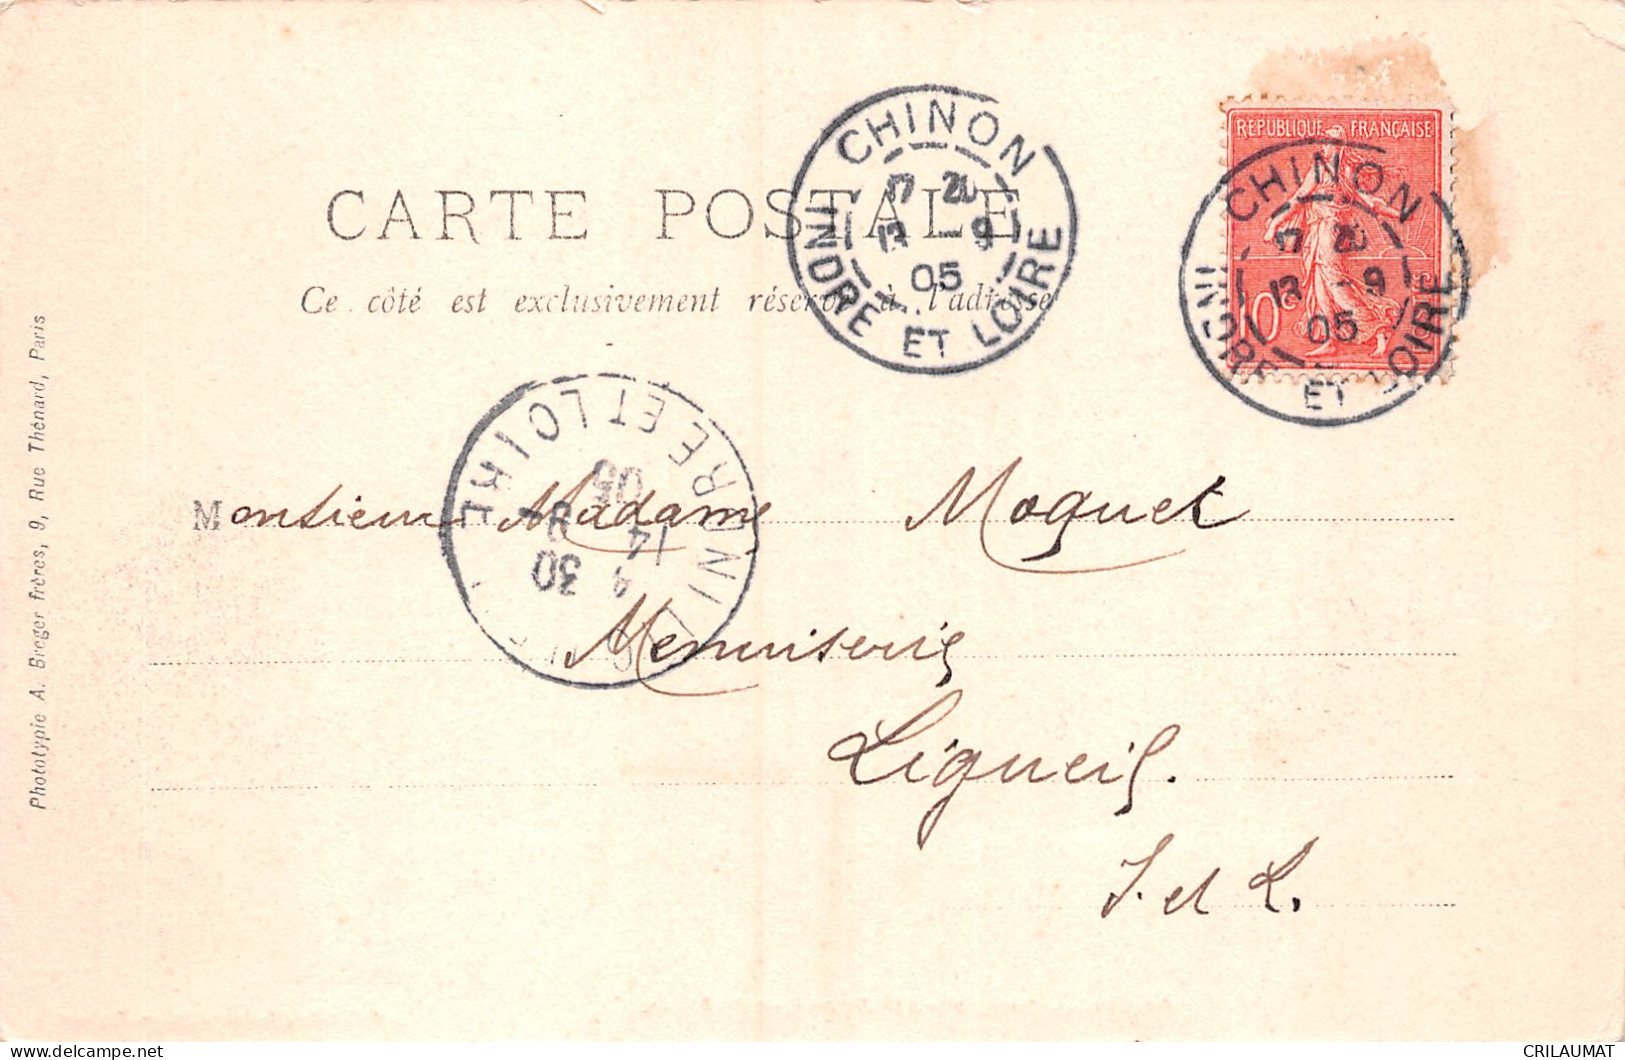 CHINON
17 20
13 - 9
05
INDRE ET LOIRE
REPUBLIQUE FRANCAISE
10c
CHINON
17 20
13 - 9
05
INDRE ET LOIRE
CARTE POSTALE
Ce côté est exclusivement réservé à l'adresse
INDRE ET LOIRE
4 30
14 9
05
Monsieur Madame Moquet
Menuiserie
Ligueil.
I. et L.
Phototypie A. Breger frères, 9, Rue Thénard, Paris
CRILAUMAT